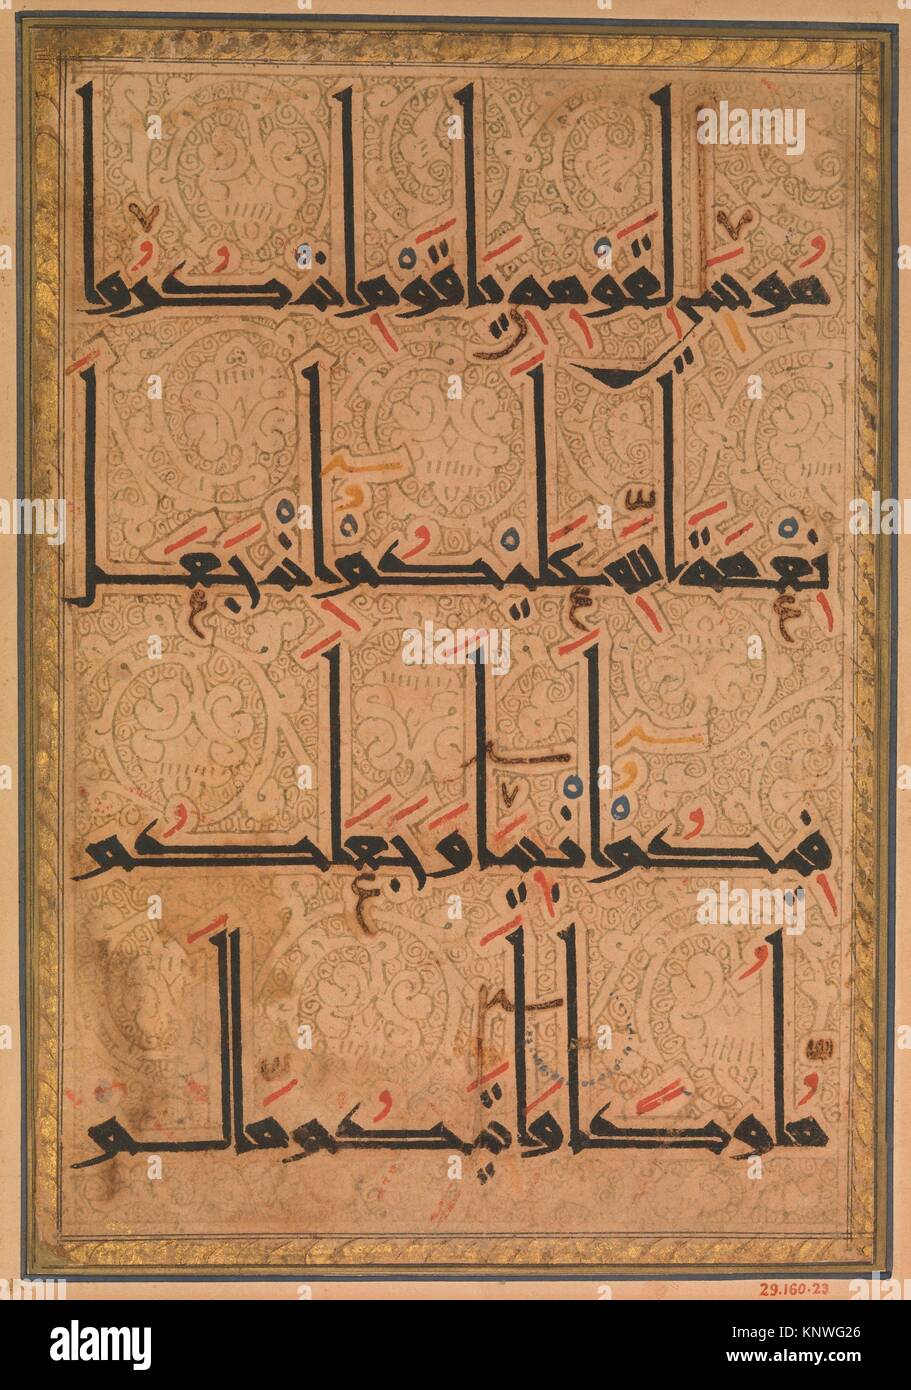 موسى لقومه يا قوم اذكروا
نعمة الله عليكم اذ جعل
فيكم انبيا وجعلكم
ملوكا واتيكم ما لم
29.160-23
alamy
Image ID: KNWG26
www.alamy.com